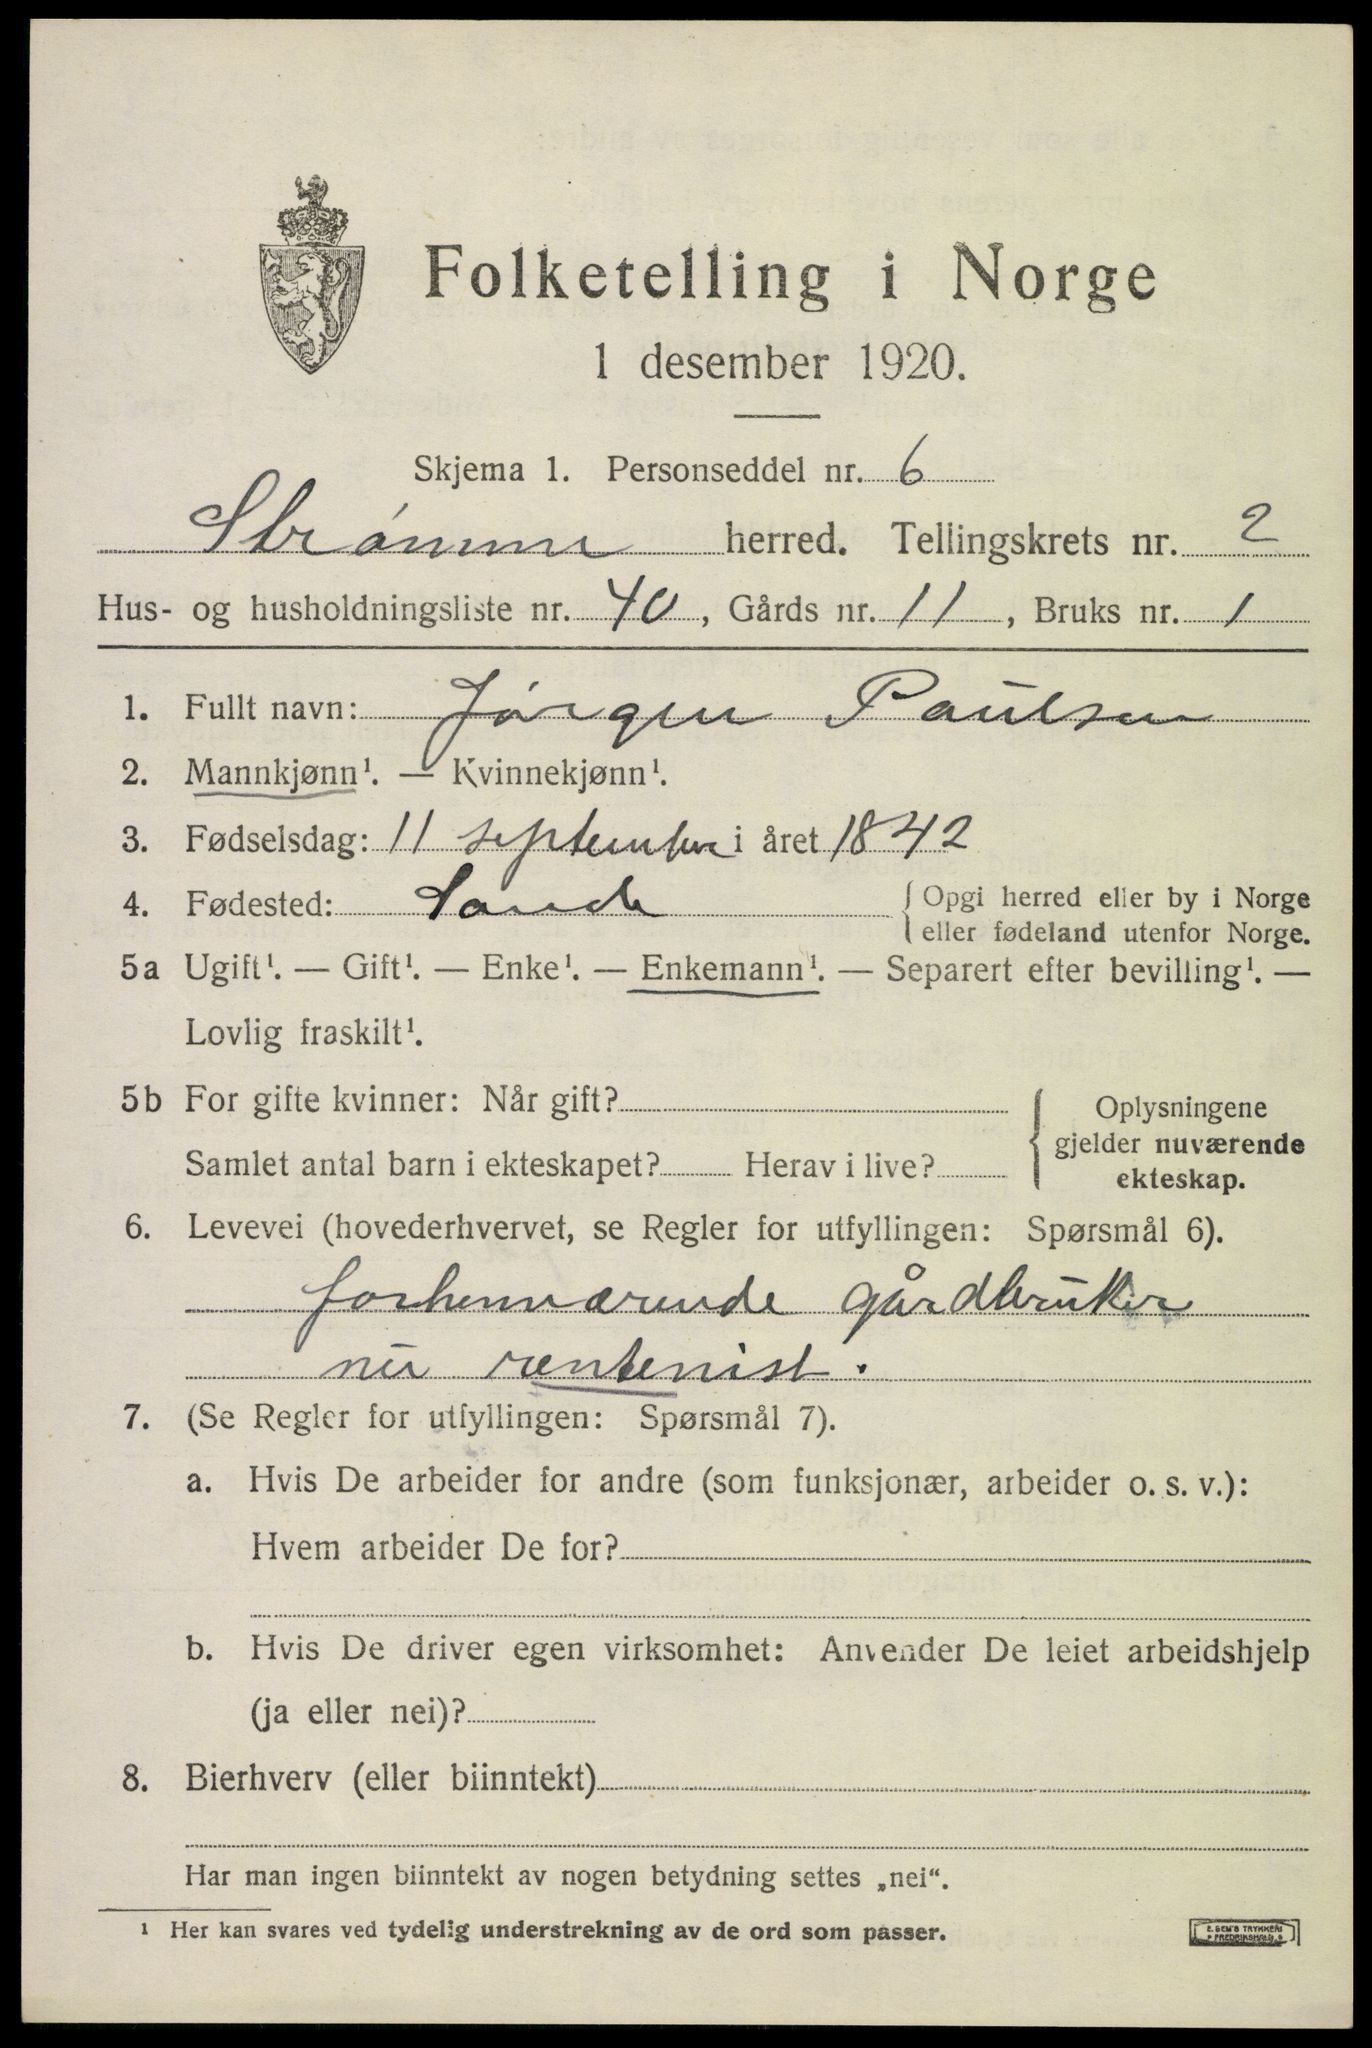 Folketelling i Norge
1 desember 1920.
Skjema 1. Personseddel nr. 6
Strømm herred. Tellingskrets nr. 2
Hus- og husholdningsliste nr. 40, Gårds nr. 11, Bruks nr. 1
1. Fullt navn: Jørgen Paulsen
2. Mannkjønn¹. — Kvinnekjønn¹.
3. Fødselsdag: 11 september i året 1842
4. Fødested: Sande { Opgi herred eller by i Norge
eller fødeland utenfor Norge.
5a Ugift¹. — Gift¹. — Enke¹. — Enkemann¹. — Separert efter bevilling¹. —
Lovlig fraskilt¹.
5b For gifte kvinner: Når gift?
Samlet antal barn i ekteskapet? Herav i live?
{ Oplysningene
gjelder nuværende
ekteskap.
6. Levevei (hovederhvervet, se Regler for utfyllingen: Spørsmål 6).
forhenværende gårdbruker
nu rentenist.
7. (Se Regler for utfyllingen: Spørsmål 7).
a. Hvis De arbeider for andre (som funksjonær, arbeider o. s. v.):
Hvem arbeider De for?
b. Hvis De driver egen virksomhet: Anvender De leiet arbeidshjelp
(ja eller nei)?
8. Bierhverv (eller biinntekt)
Har man ingen biinntekt av nogen betydning settes „nei“.
¹ Her kan svares ved tydelig understrekning av de ord som passer.
E. SEM'S TRYKKERI
FREDRIKSHALD